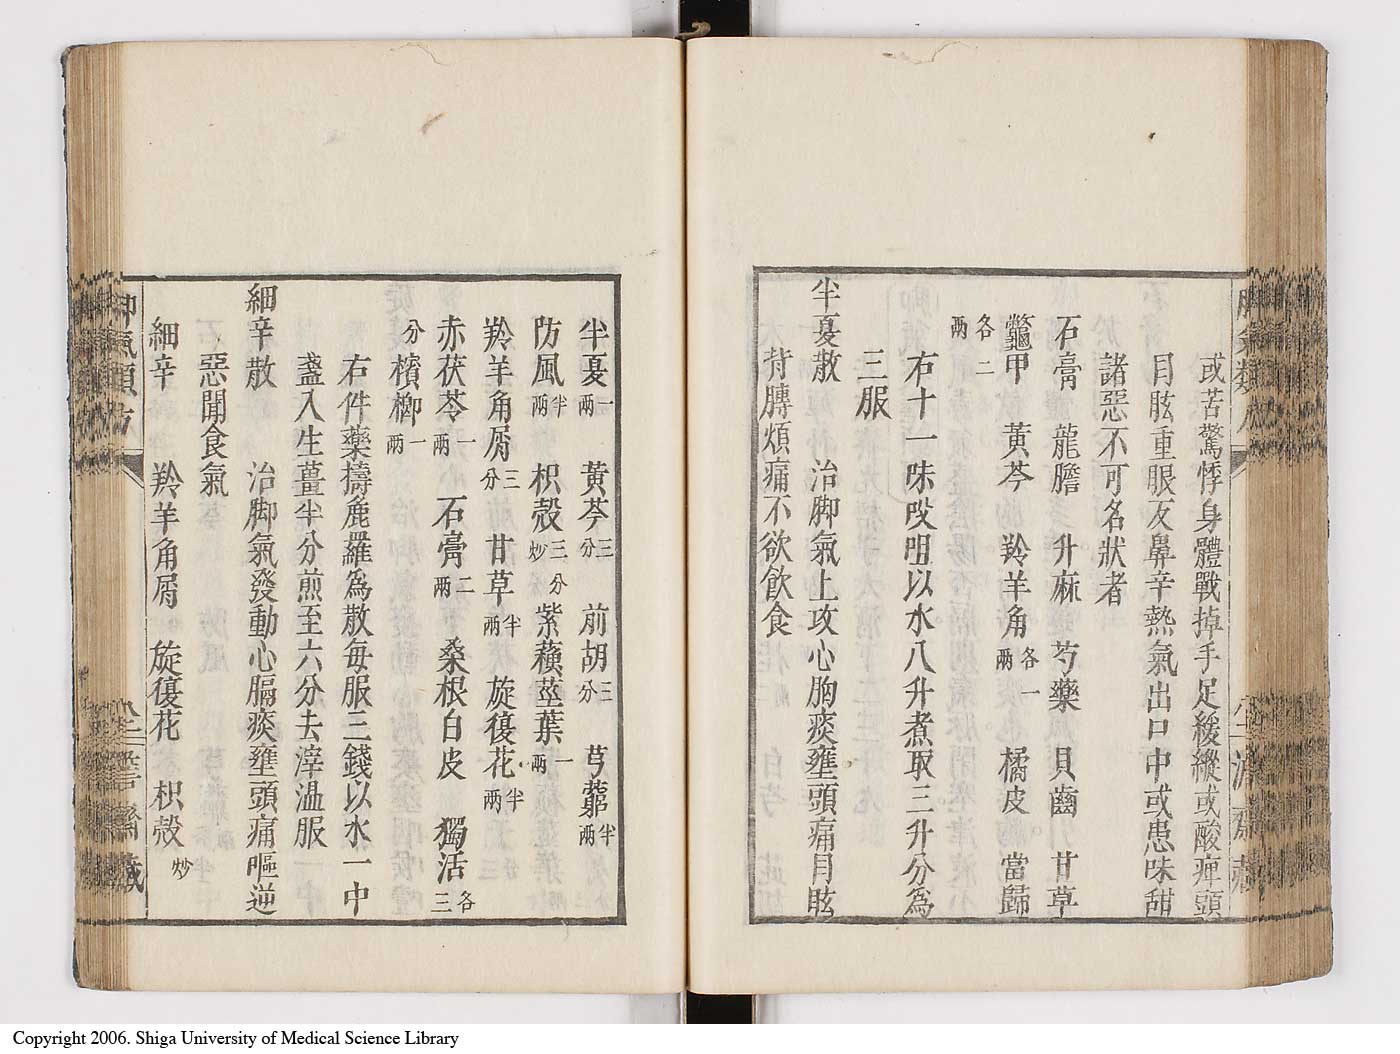 或苦驚悸身體戰掉手足緩縱或酸痺頭
目眩重眼反鼻辛熱氣出口中或患味甜
諸惡不可名狀者
石膏 龍膽 升麻 芍藥 貝齒 甘草
鼈甲 黃芩 羚羊角各一兩 橘皮 當歸
各二兩
右十一味㕮咀以水八升煮取三升分為
三服
半夏散 治脚氣上攻心胸痰壅頭痛目眩
背膊煩痛不欲飲食
半夏一兩 黃芩三分 前胡三分 芎藭半兩
防風半兩 枳殼三分炒 紫蘓莖葉一兩
羚羊角屑三分 甘草半兩 旋復花半兩
赤茯苓一兩 石膏二兩 桑根白皮 獨活各三
分 檳榔一兩
右件藥擣麁羅為散每服三錢以水一中
盞入生薑半分煎至六分去滓温服
細辛散 治脚氣發動心膈痰壅頭痛嘔逆
惡聞食氣
細辛 羚羊角屑 旋復花 枳殼炒
脚氣類方
Copyright 2006. Shiga University of Medical Science Library